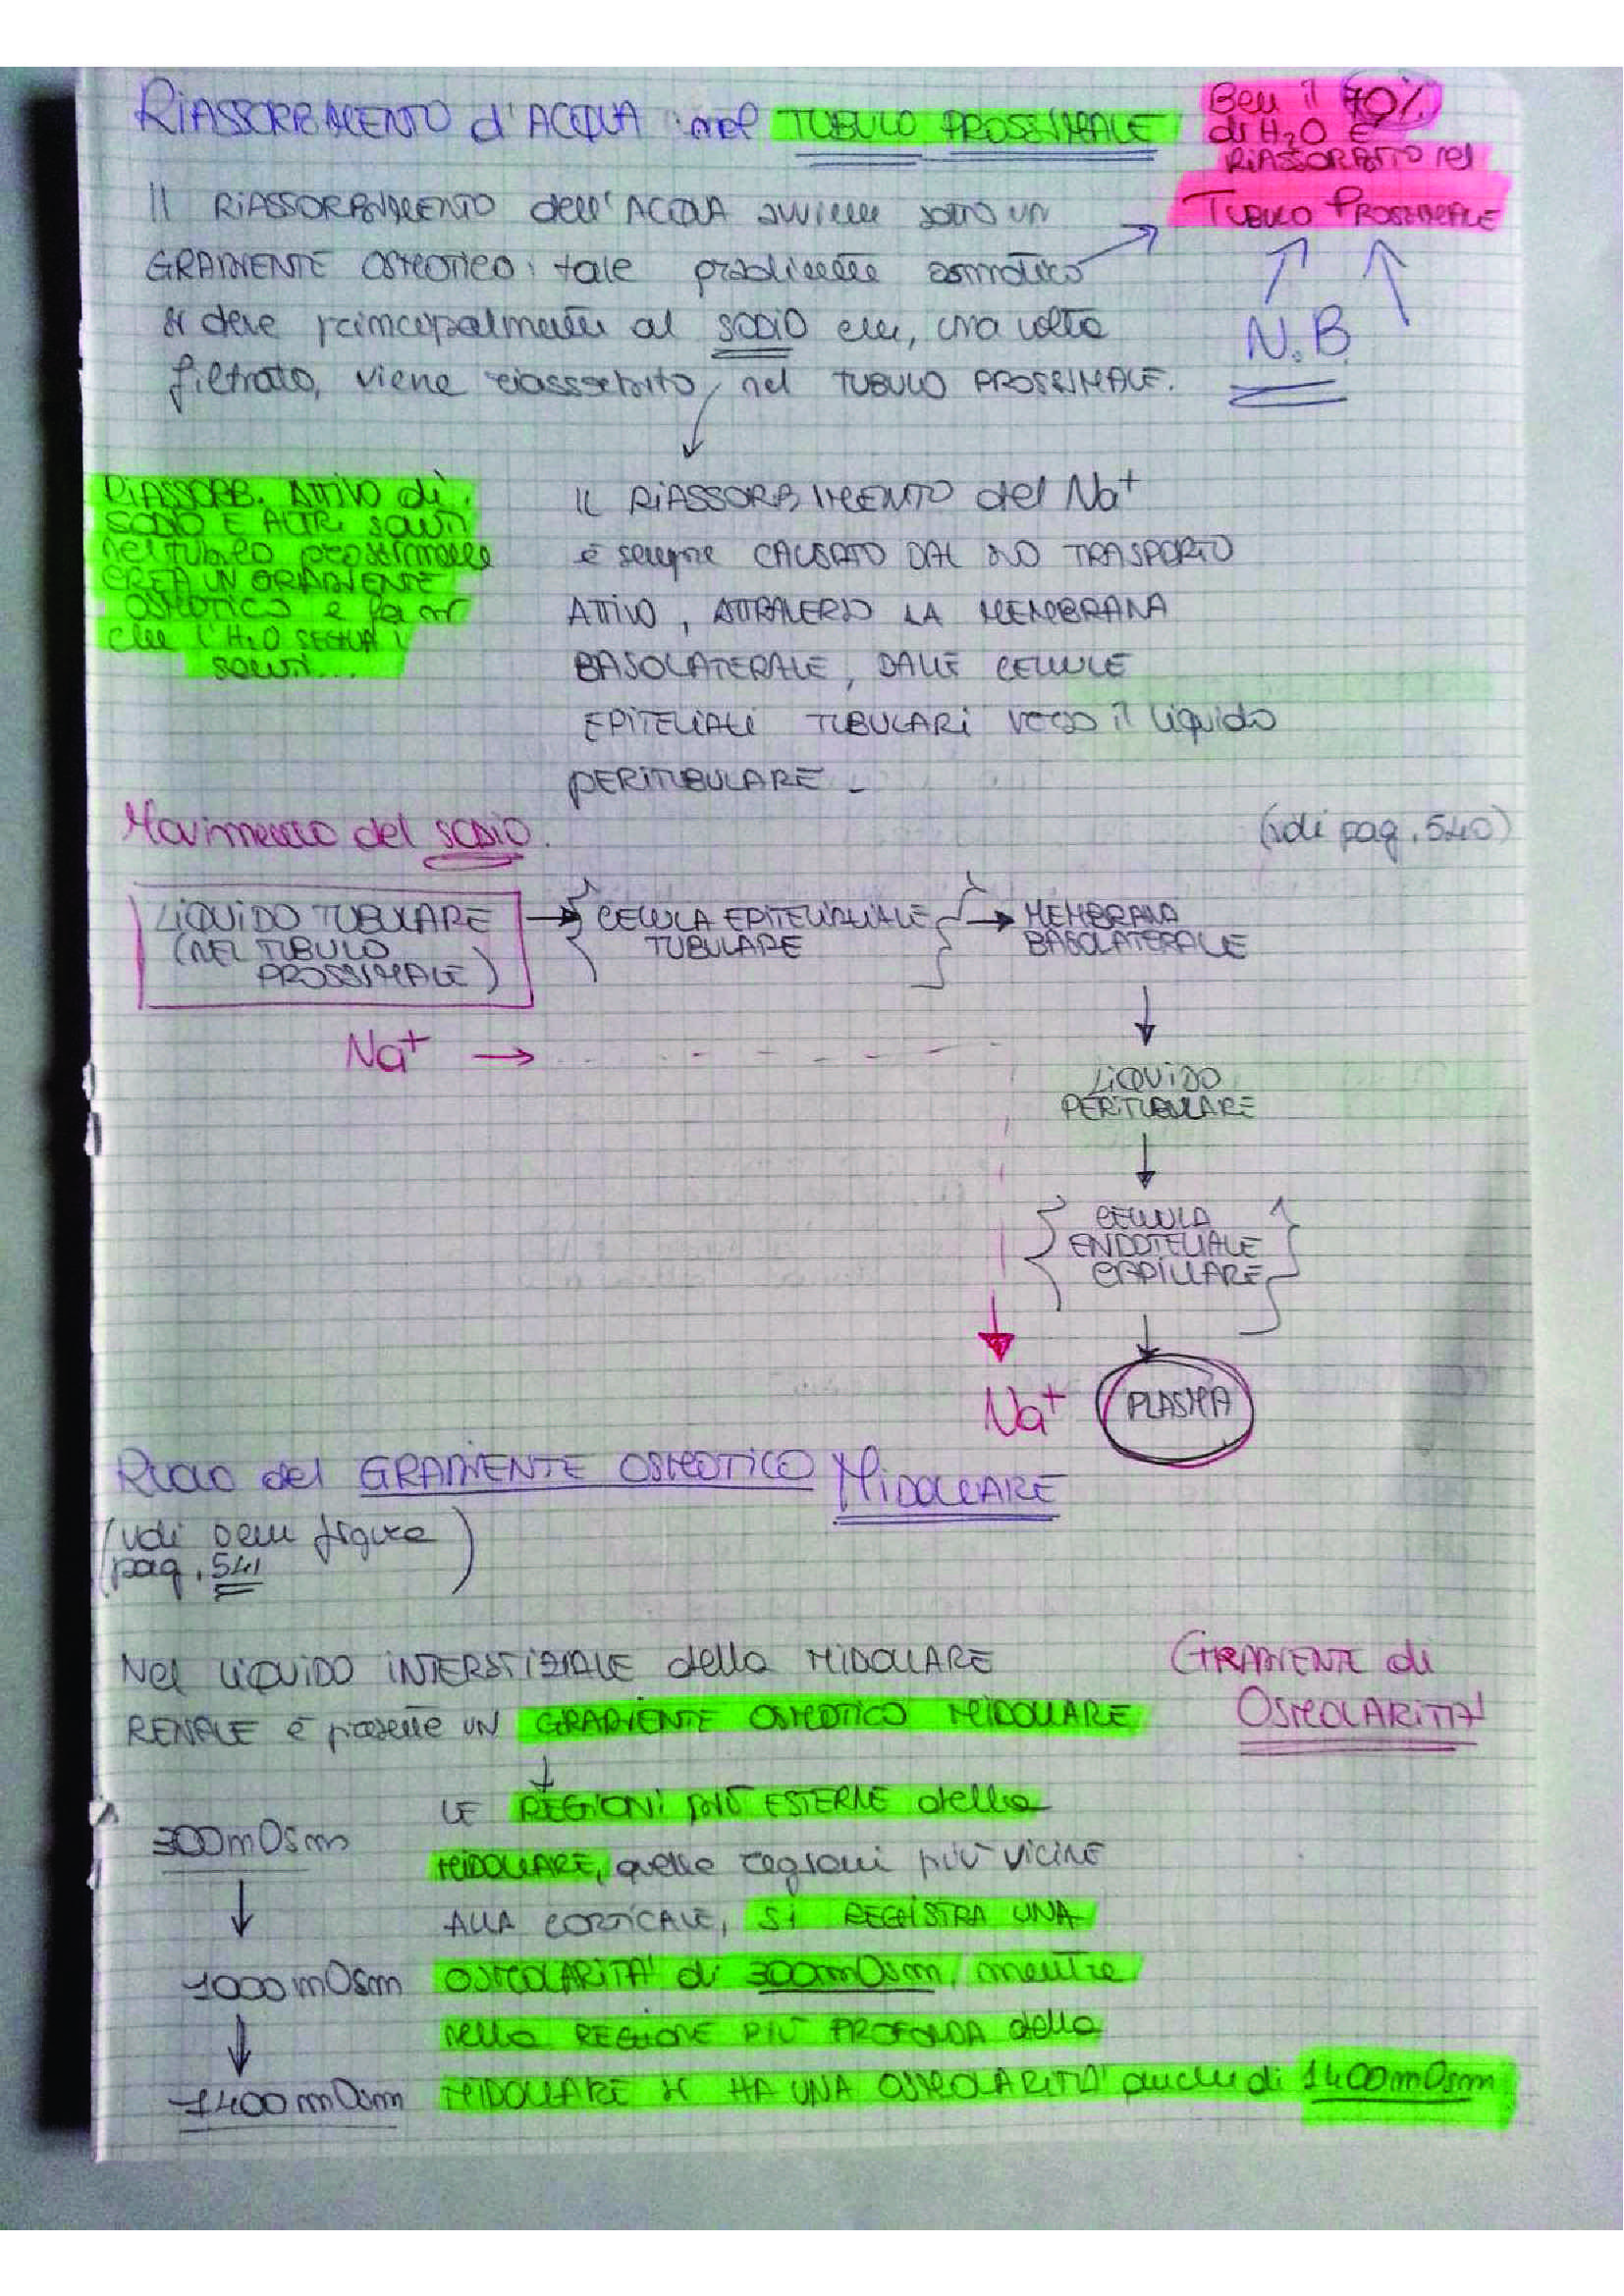 RIASSORBIMENTO d'ACQUA nel TUBULO PROSSIMALE
Ben il 70%
di H2O È
RIASSORBITO nel
TUBULO PROSSIMALE
N.B.
Il RIASSORBIMENTO dell'ACQUA avviene sotto un
GRADIENTE OSMOTICO: tale gradiente osmotico
si deve principalmente al SODIO che, una volta
filtrato, viene riassorbito, nel TUBULO PROSSIMALE.
RIASSORB. ATTIVO di
SODIO E ALTRI SOLUTI
nel tubulo prossimale
CREA UN GRADIENTE
OSMOTICO e fa sì
che l'H2O SEGUA i
soluti...
IL RIASSORBIMENTO del Na+
è sempre CAUSATO DAL SUO TRASPORTO
ATTIVO, ATTRAVERSO LA MEMBRANA
BASOLATERALE, DALLE CELLULE
EPITELIALI TUBULARI verso il liquido
PERITUBULARE -
Movimento del SODIO.
(vdi pag. 540)
LIQUIDO TUBULARE
(NEL TUBULO
PROSSIMALE)
CELLULA EPITELIALE
TUBULARE
MEMBRANA
BASOLATERALE
Na+
LIQUIDO
PERITUBULARE
CELLULA
ENDOTELIALE
CAPILLARE
Na+
PLASMA
Ruolo del GRADIENTE OSMOTICO MIDOLLARE
(vdi figura
pag. 541)
Nel LIQUIDO INTERSTIZIALE della MIDOLLARE
RENALE è presente UN GRADIENTE OSMOTICO MIDOLLARE
GRADIENTE di
OSMOLARITA'
300mOsm
1000mOsm
1400mOsm
LE REGIONI più ESTERNE della
MIDOLLARE, quelle regioni più VICINE
ALLA CORTICALE, SI REGISTRA UNA
OSMOLARITA' di 300mOsm, mentre
nella REGIONE PIÙ PROFONDA della
MIDOLLARE si HA UNA OSMOLARITA' anche di 1400mOsm